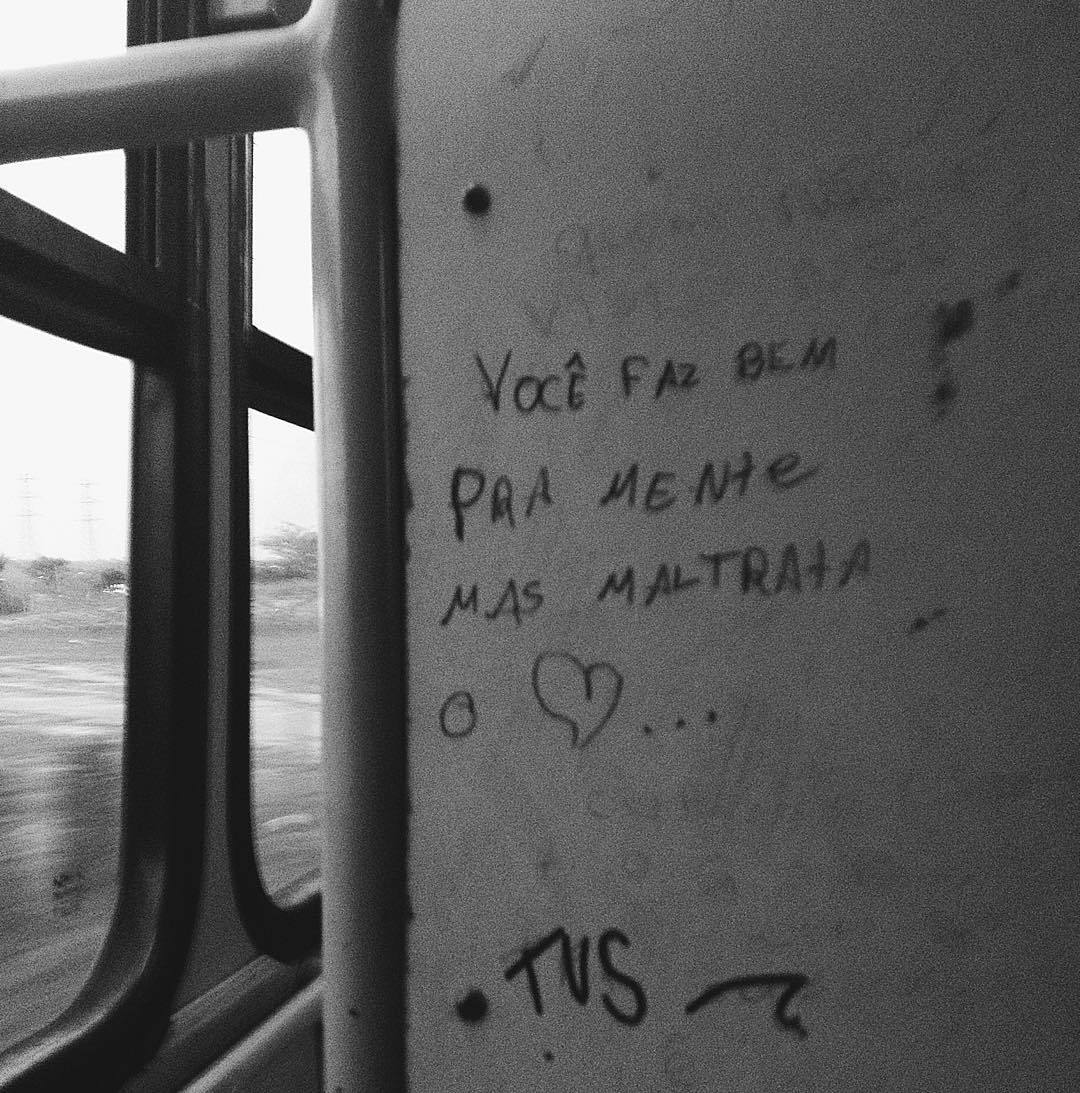 VOCÊ FAZ BEM
PRA MENTE
MAS MALTRATA
O ♡...
TVS